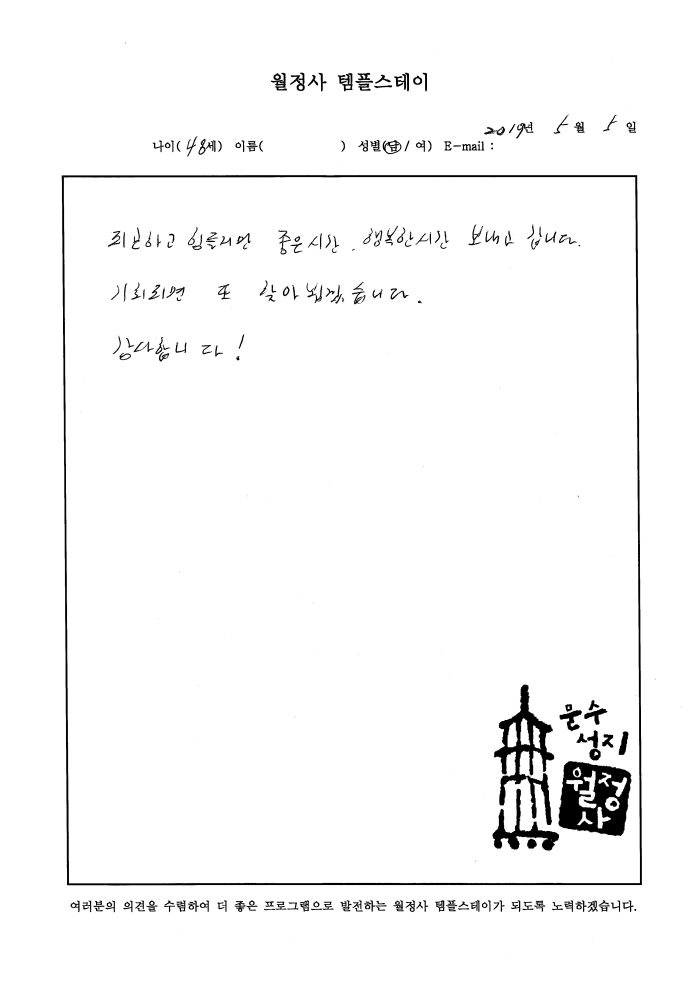 월정사 템플스테이
2019년 5월 5일
나이( 48세) 이름( ) 성별(남/ 여) E-mail :
좋은시간, 행복한시간 보내고 갑니다.
기회되면 또 찾아 뵙겠습니다.
감사합니다!
문수
성지
월정
사
여러분의 의견을 수렴하여 더 좋은 프로그램으로 발전하는 월정사 템플스테이가 되도록 노력하겠습니다.